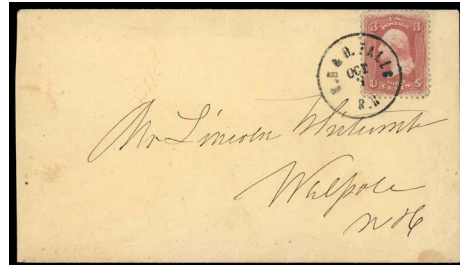 N.B & B. FALLS
OCT
3
R.R
Mr Lincoln Whitcomb
Walpole
N H